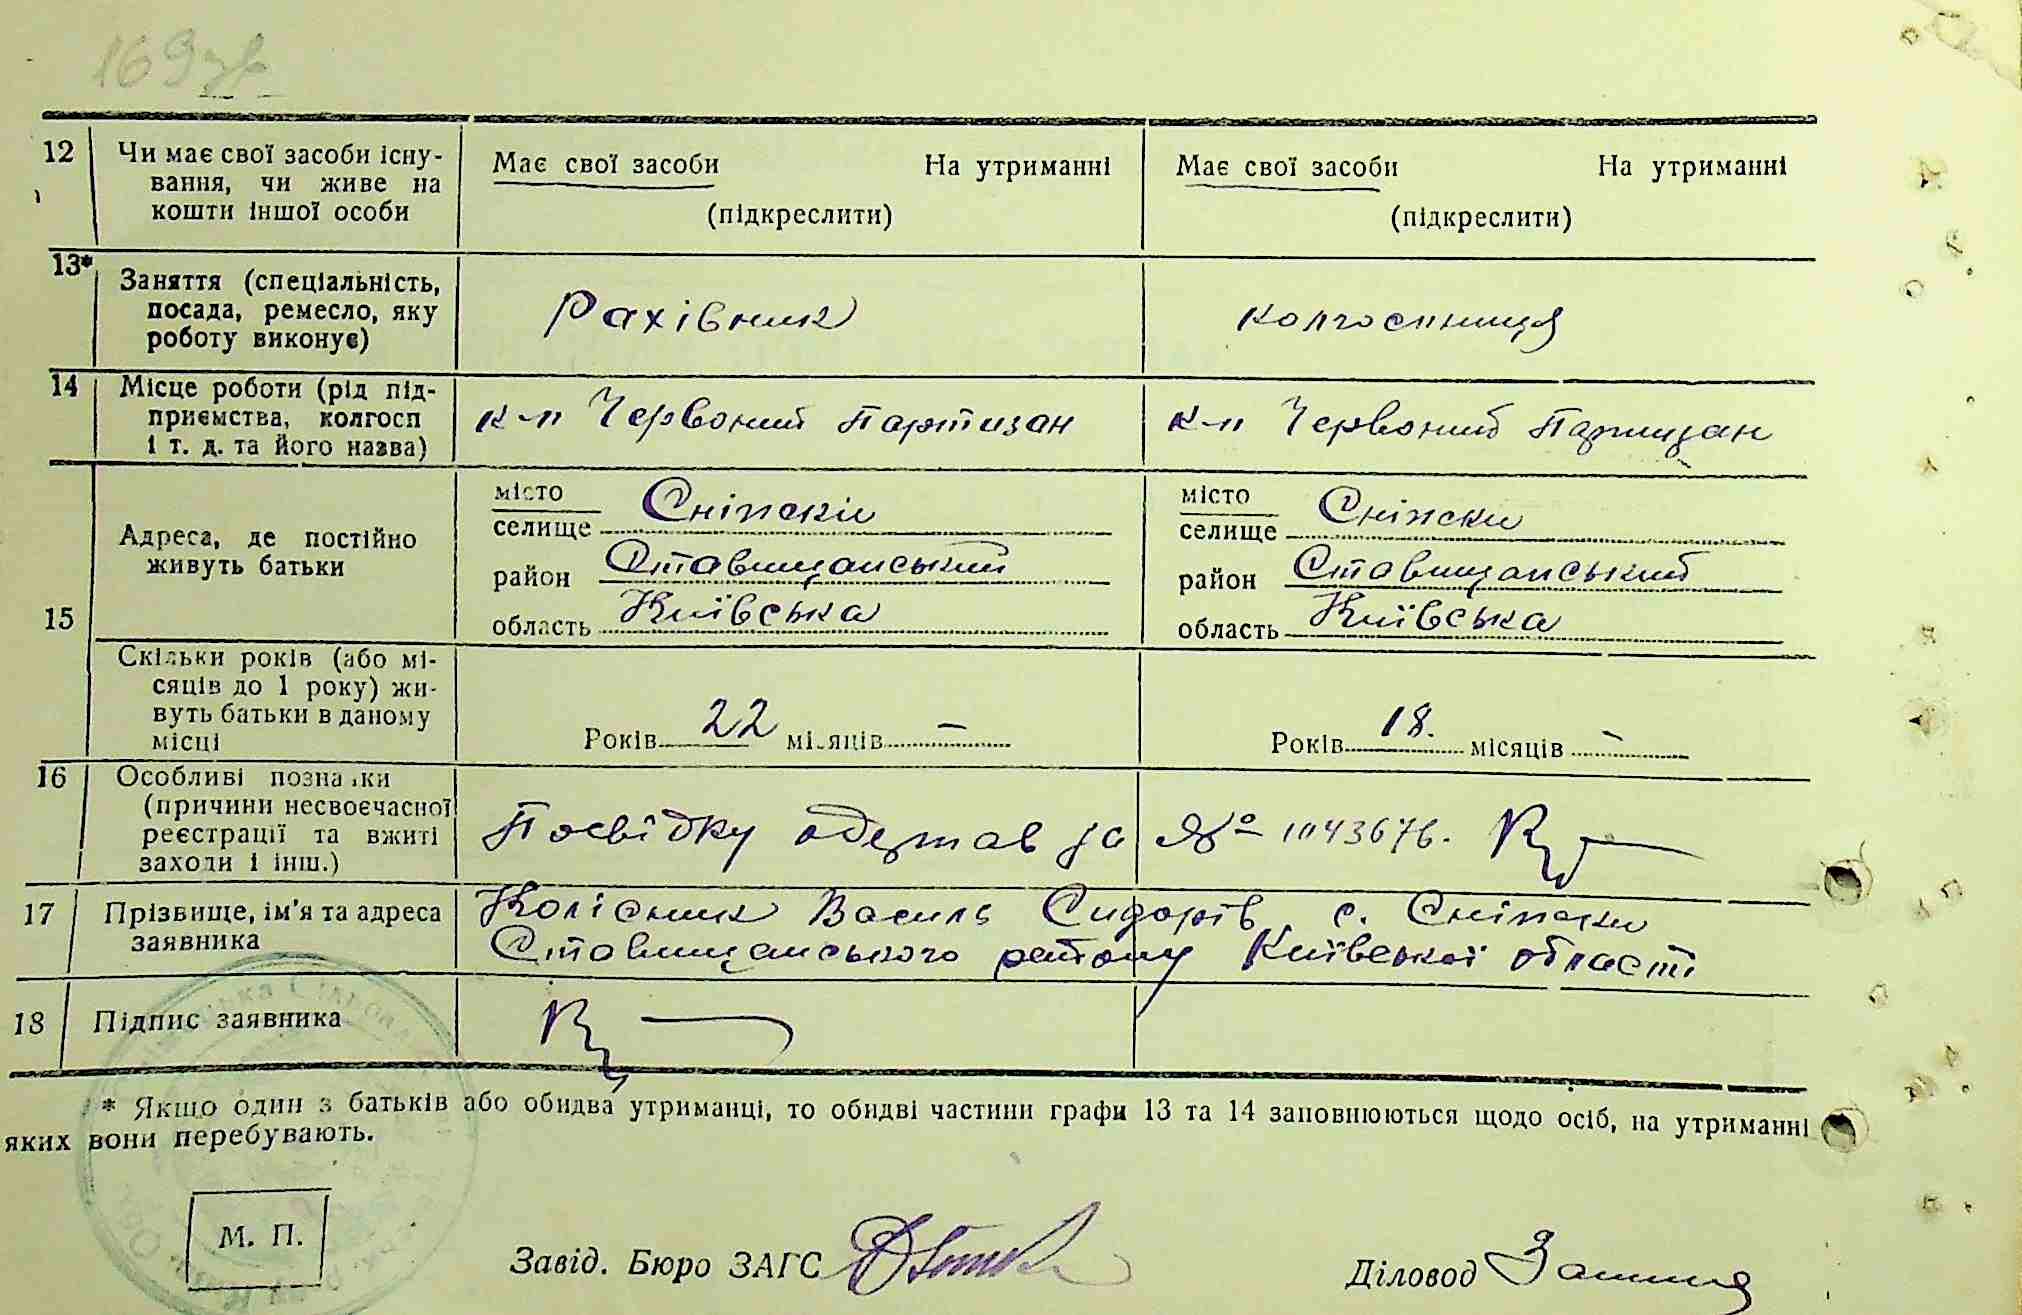 169 зв
12 Чи має свої засоби існу-
вання, чи живе на
кошти іншої особи
Має свої засоби На утриманні
(підкреслити)
Має свої засоби На утриманні
(підкреслити)
13* Заняття (спеціальність,
посада, ремесло, яку
роботу виконує)
Рахівник
колгоспниця
14 Місце роботи (рід під-
приємства, колгосп
і т. д. та його назва)
к-п Червоний Партизан
к-п Червоний Партизан
15 Адреса, де постійно
живуть батьки
місто
селище Сніжски
район Ставищанський
область Київська
місто
селище Сніжски
район Ставищанський
область Київська
Скільки років (або мі-
сяців до 1 року) жи-
вуть батьки в даному
місці
Років 22 місяців –
Років 18. місяців –
16 Особливі познаки
(причини несвоєчасної
реєстрації та вжиті
заходи і інш.)
Посвідку одержав за № 1043676.
17 Прізвище, ім'я та адреса
заявника
Колісник Василь Сидорів с. Сніжски
Ставищанського району Київської області
18 Підпис заявника
* Якщо один з батьків або обидва утриманці, то обидві частини графи 13 та 14 заповнюються щодо осіб, на утриманні
яких вони перебувають.
М. П.
Завід. Бюро ЗАГС
Діловод